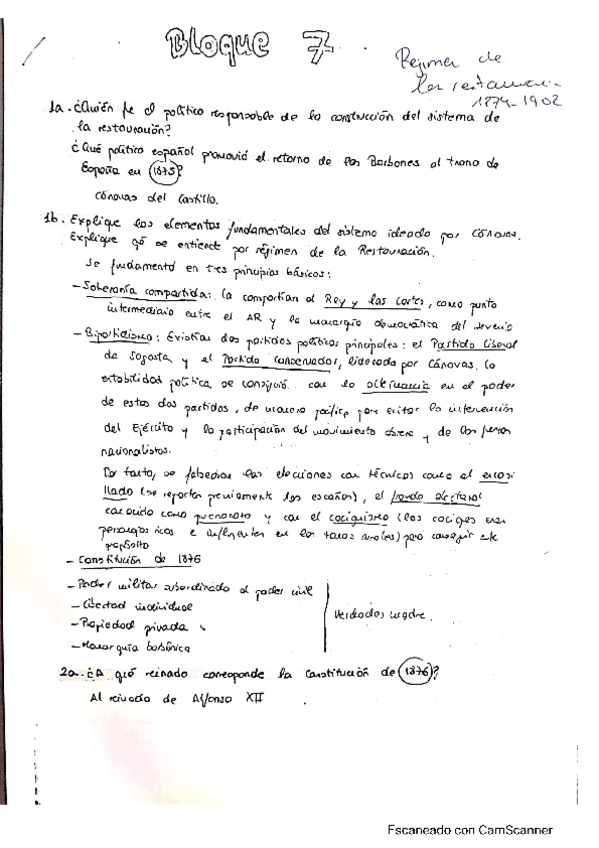 Bloque 7
Régimen de
la restauración
1874-1902
1a.- ¿Quién fue el político responsable de la construcción del sistema de
la restauración?
¿Qué político español promovió el retorno de los Borbones al trono de
España en 1875?
Cánovas del Castillo.
1b. Explique los elementos fundamentales del sistema ideado por Cánovas.
Explique qé se entiende por régimen de la Restauración.
Se fundamentó en tres principios básicos:
- Soberanía compartida: la compartían el Rey y las cortes, como punto
intermedio entre el AR y la monarquía democrática del sexenio
- Bipartidismo: Existían dos partidos políticos principales: el Partido liberal
de Sagasta y el Partido conservador, liderado por Cánovas. La
estabilidad política se consiguió con la alternancia en el poder
de estos dos partidos, de manera pacífica para evitar la intervención
del Ejército y la participación del movimiento obrero y de los
nacionalistas.
Por tanto, se falseaban las elecciones con técnicas como el encasi
llado (se reparten previamente los escaños), el fraude electoral
conocido como pucherazo y con el caciquismo (los caciques eran
personajes ricos e influyentes en las zonas rurales) para conseguir este
propósito
- Constitución de 1876
- Poder militar subordinado al poder civil
- Libertad individual
- Propiedad privada
- Monarquía borbónica
Verdades madre.
2a.- ¿A qué reinado corresponde la Constitución de 1876?
Al reinado de Alfonso XII
Escaneado con CamScanner